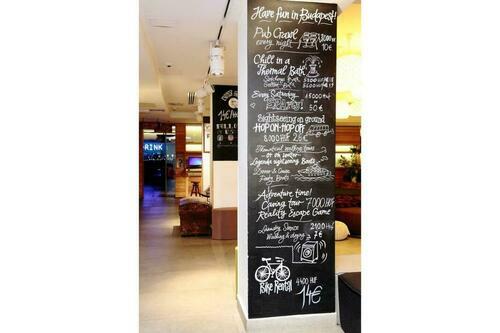 Have fun in Budapest!
Pub Crawl
every night
10€
Chill in a
Thermal Bath
Every Saturday
50€
Sightseeing on ground
HOP ON-HOP OFF
8000HUF 26€
Thematical walking tours
Legenda sightseeing Boats
Dinner & Cruise
Party Boats
Adventure time!
Caving tour 7000 HUF
Reality Escape Game
Laundry Service 2100 HUF
Washing & drying 7€
Bike Rental
4400 HUF
14€
RINK